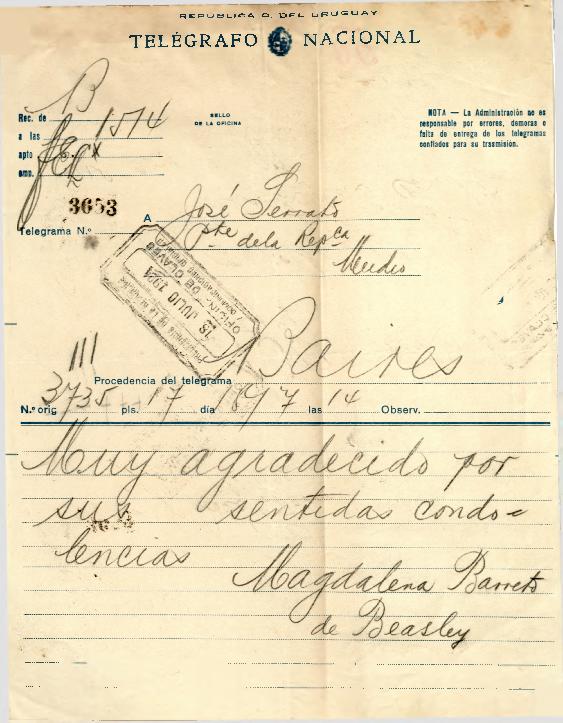 REPUBLICA O. DEL URUGUAY
TELÉGRAFO NACIONAL
B
Rec. de
1514
a las
apto
emp.
SELLO
DE LA OFICINA
NOTA — La Administración no es
responsable por errores, demoras o
falta de entrega de los telegramas
confiados para su trasmisión.
3653
Telegrama N.º
A José Serrato
Pte de la Repca
Mvideo
18 JULIO 1924
OFICINA DE CLAVES
Baires
Procedencia del telegrama
N.º orig 3735 pls. 17 día 18/7 las 14 Observ.
Muy agradecido por
sus sentidas condo=
lencias
Magdalena Barreto
de Beasley